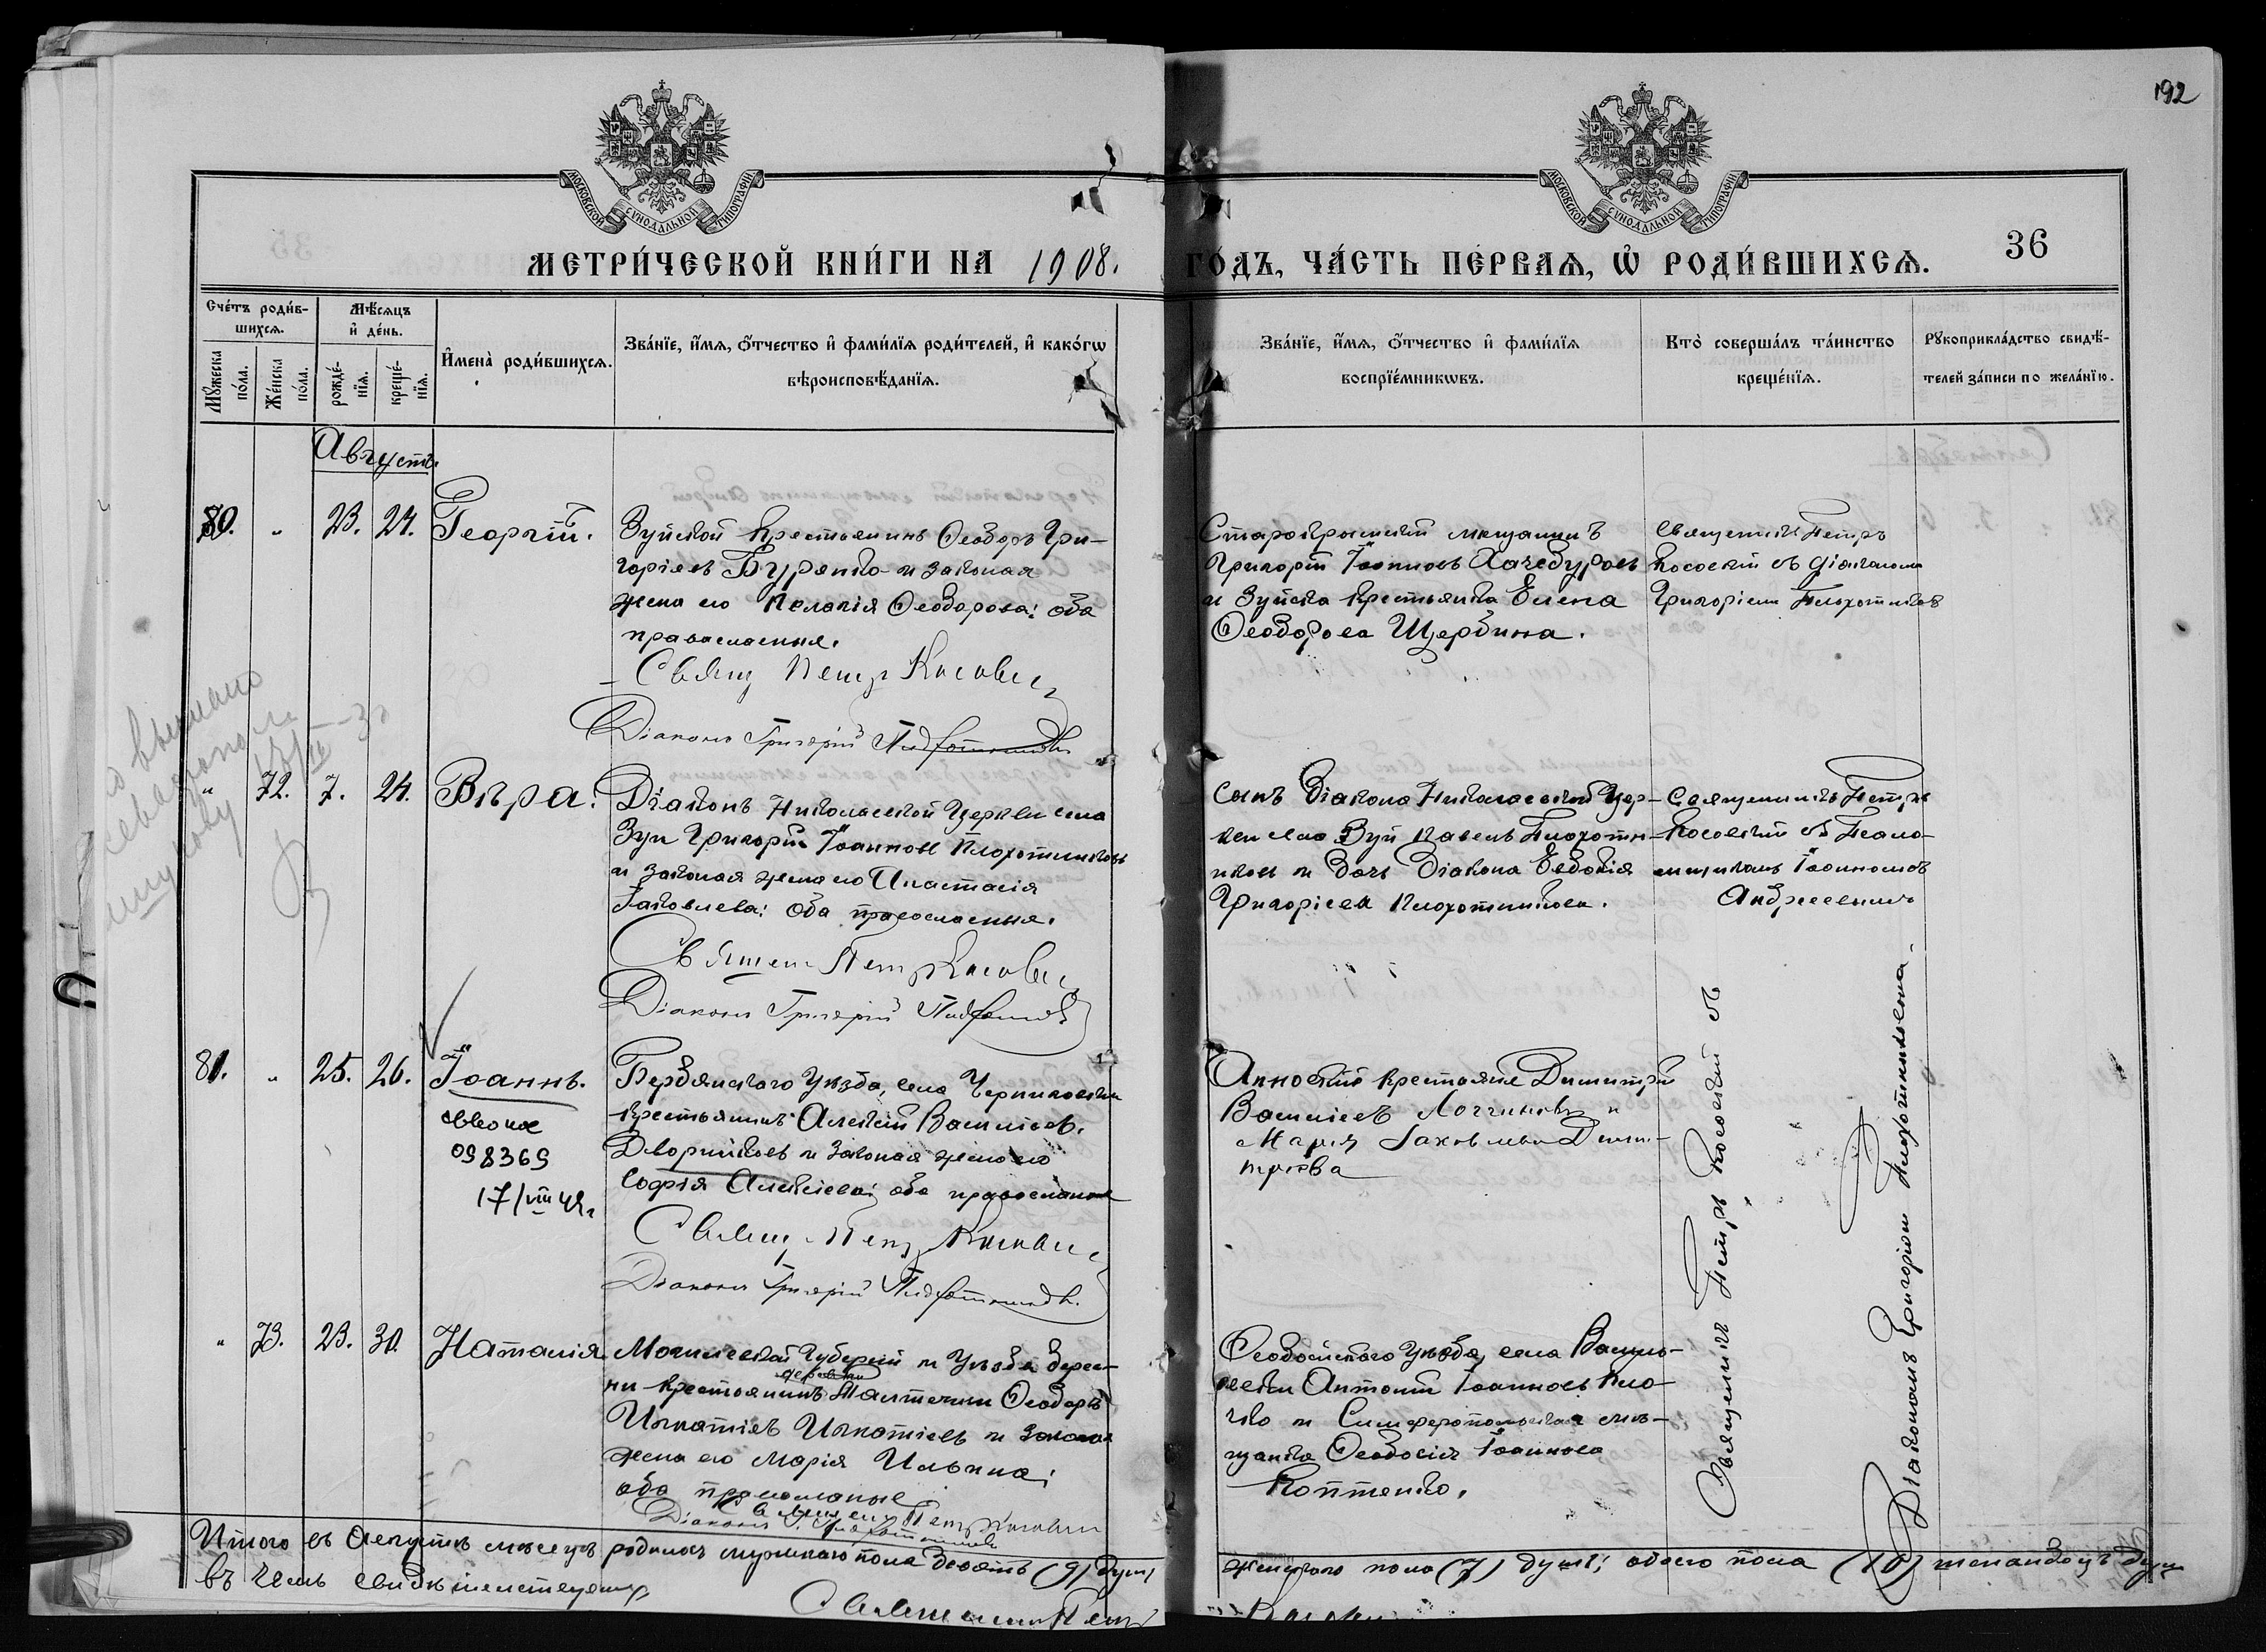 192
МОСКОВСКОЙ СУНОДАЛЬНОЙ ТИПОГРАФІИ
МОСКОВСКОЙ СУНОДАЛЬНОЙ ТИПОГРАФІИ
МЕТРИ́ЧЕСКОЙ КНИ́ГИ НА 1908. ГО́ДЪ, ЧА́СТЬ ПЕ́РВАѦ, Ѡ҆ РОДИ́ВШИХСѦ.
36
Сче́тъ роди́в-
шихсѧ.
Мꙋ́жеска
по́ла.
Же́нска
по́ла.
Мѣ́сѧцъ
и҆ де́нь.
рожде́-
нїѧ.
креще́-
нїѧ.
И҆мена̀ роди́вшихсѧ.
Зва́нїе, и҆́мѧ, ѻ҆́тчество и҆ фами́лїѧ роди́телей, и҆ како́гѡ
вѣроисповѣ́данїѧ.
Зва́нїе, и҆́мѧ, ѻ҆́тчество и҆ фами́лїѧ
воспрїе́мникѡвъ.
Кто̀ соверша́лъ та́инство
креще́нїѧ.
Рꙋкоприкла́дство свидѣ́-
телей за́писи по жела́нїю.
Августъ.
80. „ 23. 24. Георгій.
Зуйской крестьянинъ Ѳеодоръ Гри-
горіевъ Буренко и законая
жена его Пелагія Ѳеодорова: оба
православныя.
Свящ Петръ Косовск
Діаконъ Григорій Плохотниковъ
Старокрымскій мещанинъ
Григорій Іоанновъ Хачедуровъ
и Зуйска крестьянка Елена
Ѳеодорова Щербина.
Священикъ Петръ
Косовскій съ діакономъ
Григоріем Плохотников
„ 72. 7. 24. Вѣра.
Діаконъ Николаевской Церкви села
Зуи Григорій Іоанновъ Плохотниковъ
и законая жена его Анастасія
Іаковлева: оба православныя.
Священ Петръ Косовск
Діаконъ Григорій Плохотников
Сынъ Діакона Николаевской Цер-
кви села Зуй Павелъ Плохотни-
ковъ и дочь Діакона Евдокія
Григоріева Плохотникова.
Священникъ Петръ
Косовскій съ Псало-
мщикомъ Іоанномъ
Андреевымъ
81. „ 25. 26. Іоаннъ.
098369
17/VIII 49г
Бердянскаго Уѣзда, села Черниговки
крестьянинъ Алексій Васильевъ.
Дворниковъ и законая жена его
Софія Алексіева; оба православныя
Свящ. Петръ Косовск
Діаконъ Григорій Плохотниковъ.
крестьяне Димитрій
Васильевъ и
Марія Іаковлева Дими-
трова
Священникъ Петръ Косовскій съ
Діакономъ Григоріем Плохотниковым
„ 73. 23. 30. Наталія
Могилевской Губерніи и Уѣзда дерев-
ни крестьянинъ Ѳеодоръ
Игнатіевъ Игнатіевъ и законая
жена его Марія Ильина;
оба православные
Священ Петръ Косовск
Діаконъ Г. Плохотников
Ѳеодосійскаго Уѣзда, села Василь-
евки Антоній Іоанновъ Кло-
чко и Симферопольская мѣ-
щанка Ѳеодосія Іоаннова
Коптенко.
Итого въ Августѣ мѣсяцѣ родилось мужскаго пола девять (9) душъ, женскаго пола (7) душъ; обоего пола (16) шестнадцать душъ
въ чемъ свидѣтельствуемъ
Священникъ Петръ Косовск